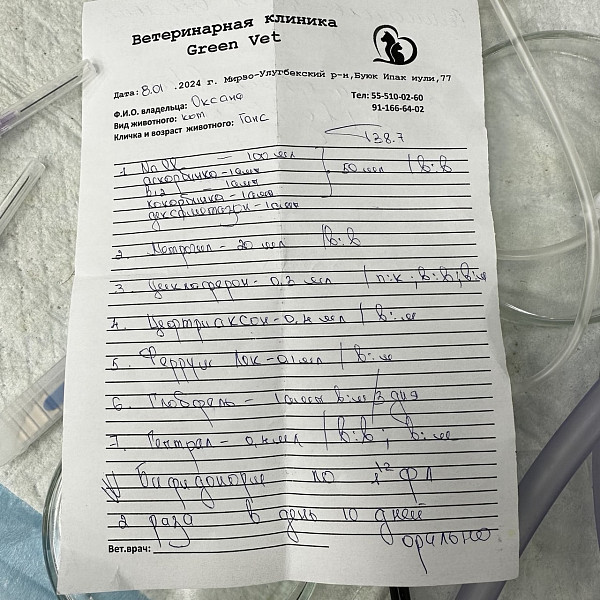 Ветеринарная клиника
Green Vet
Дата: 8.01 .2024 г. Мирзо-Улугбекский р-н, Буюк Ипак йули, 77
Ф.И.О. владельца: Оксана
Тел: 55-510-02-60
Вид животного: кот
91-166-64-02
Кличка и возраст животного: Ганс
T 38.7
1. NaCl — 100 мл
аскорбинка - 1 амп
50 мл / в:в
B12 — 1 амп
дексаметазон - 1 амп
2. 20 мл / в:в
3. 0,2 мл / п:к; в:в; в:м
4. Цефтриаксон - 0,4 мл / в:м
5. Феррум Лек - 0,1 мл / в:м
6. в:м / 3 дня
7. - 0,4 мл / в:в; в:м
V по 1/2 фл
2 раза в день 10 дней
орально
Вет.врач: